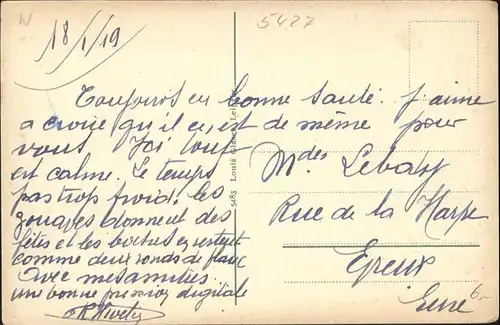 5427
18/1/19
Toujours en bonne santé. J'aime
a croire qu'il en est de même pour
vous Ici tout
est calme. Le temps
pas trop froid. les
zouaves donnent des
fêtes et les boches en restent
comme deux ronds de flanc
Avec mes amitiés
une bonne pression digitale
5485 Louis
Mdes Lebas
Rue de la Harpe
Evreux
Eure